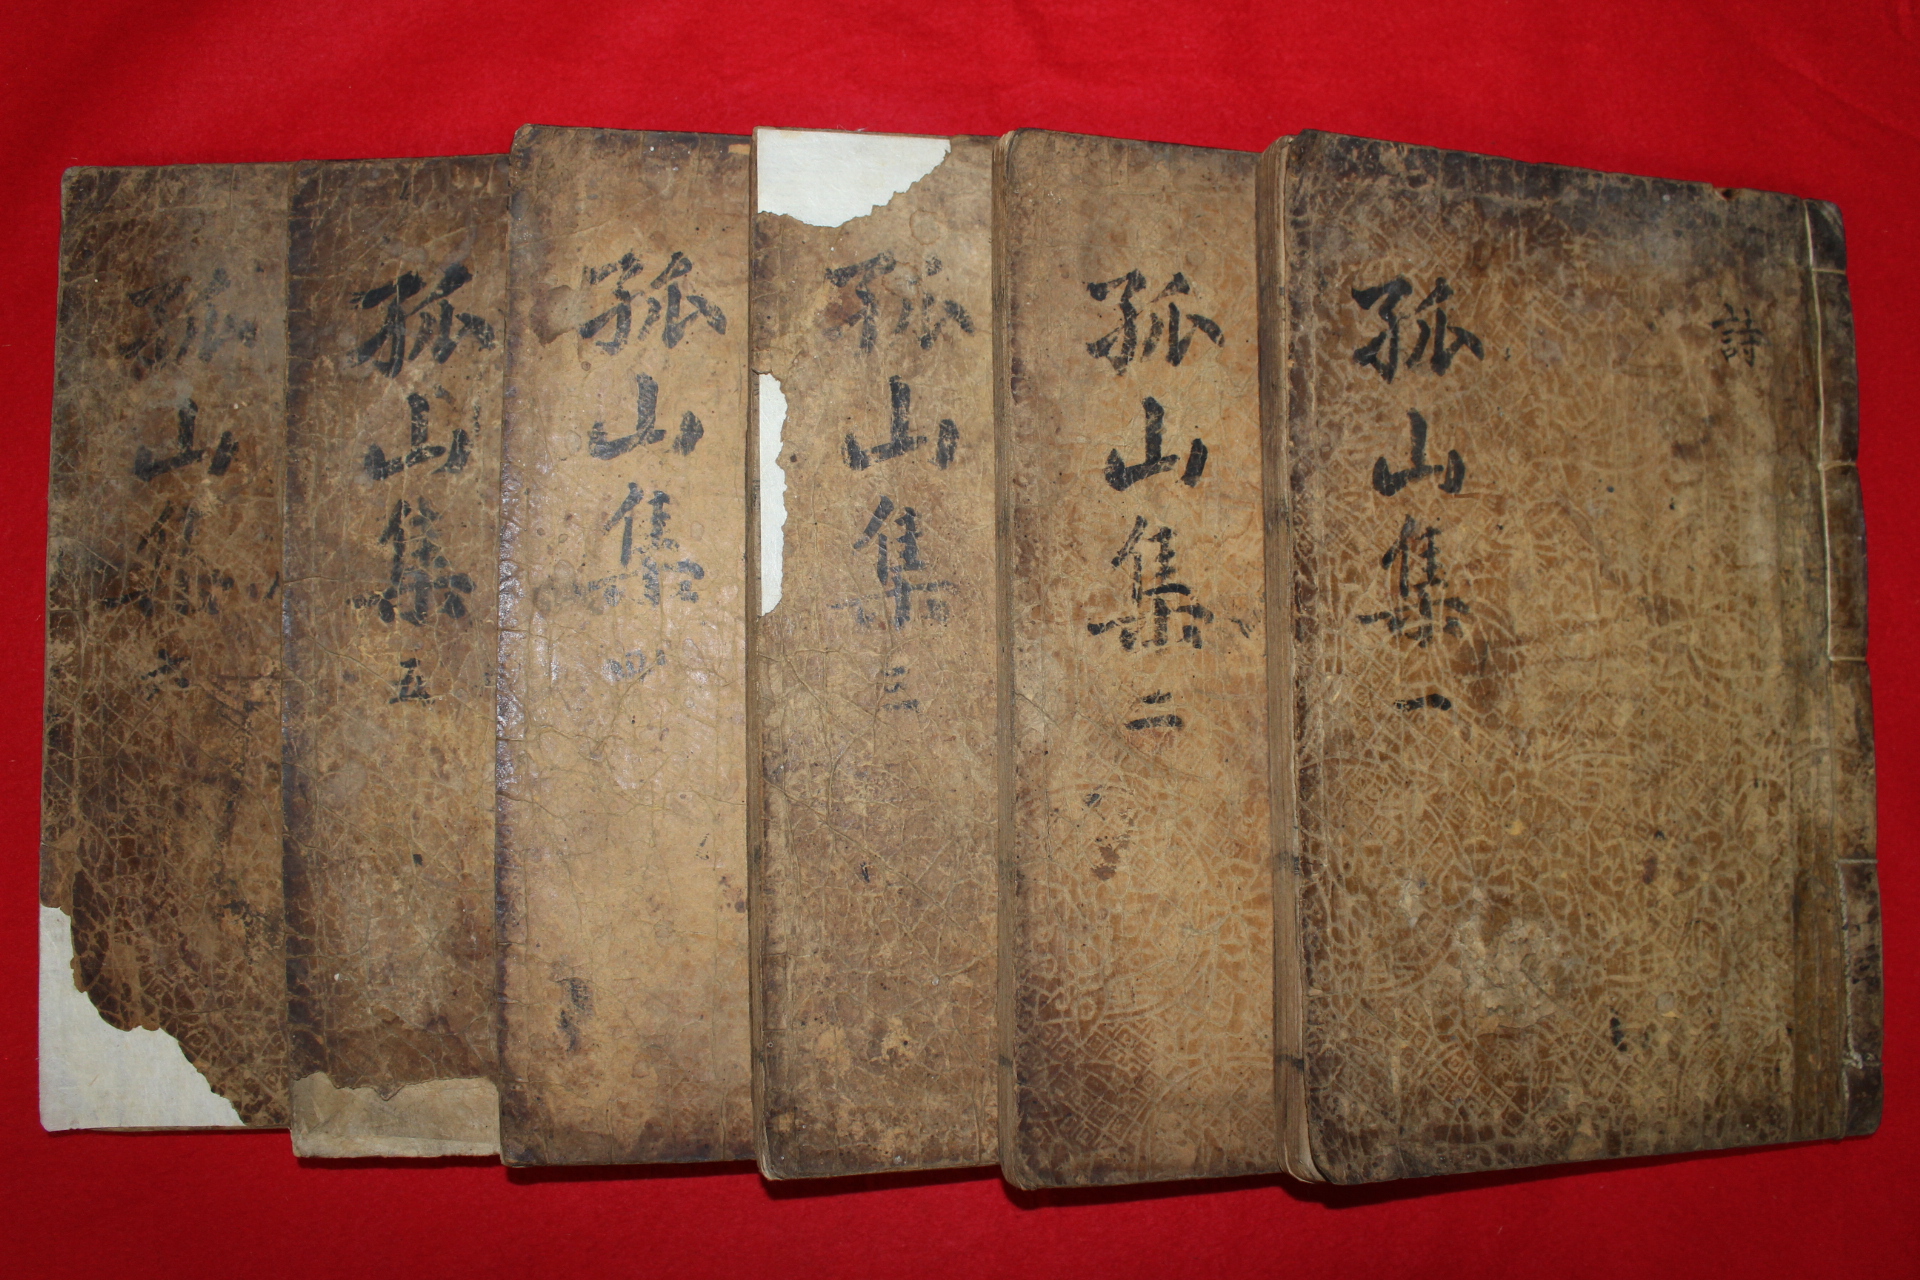 詩
孤山集 一
孤山集 二
孤山集 三
孤山集 四
孤山集 五
孤山集 六